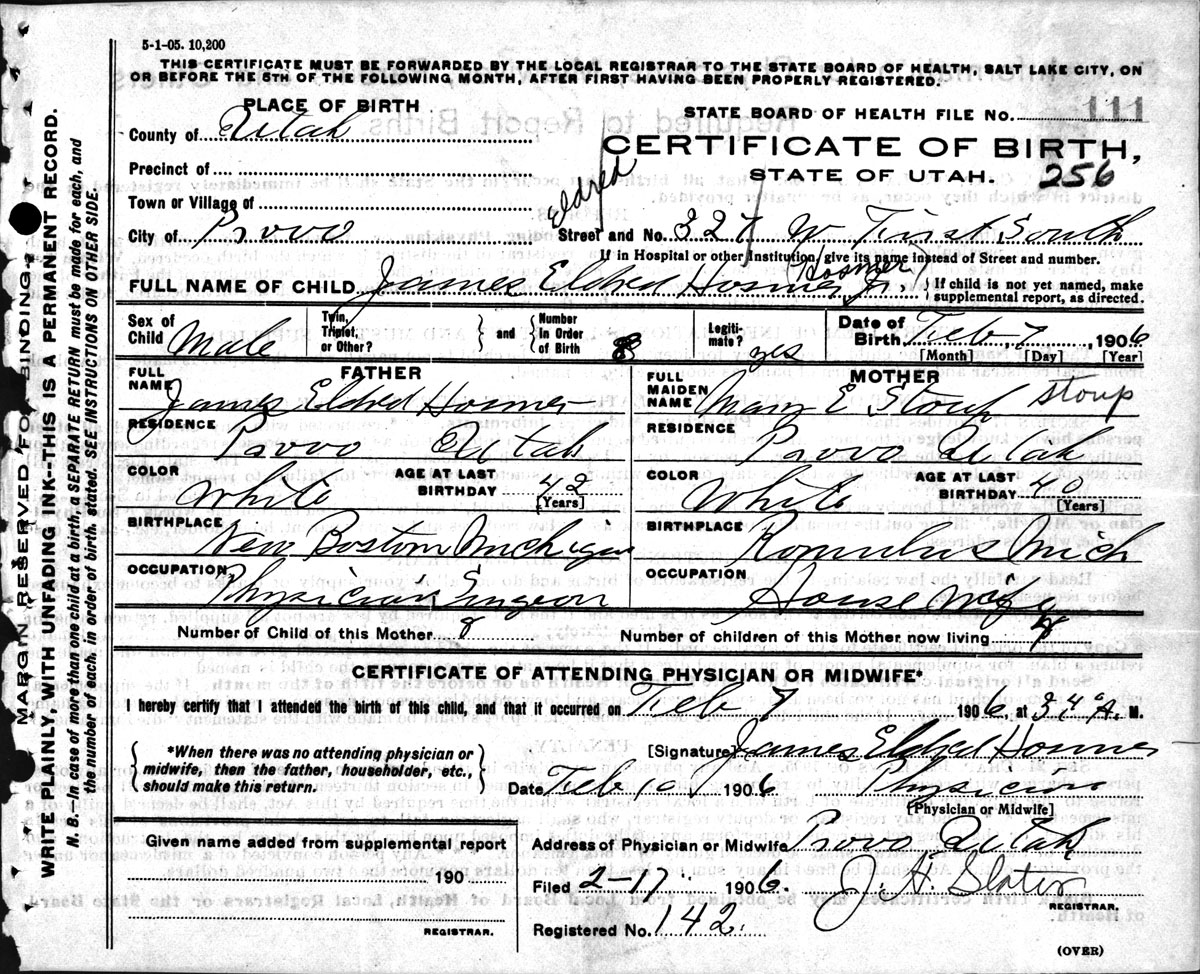 5-1-05. 10,200
THIS CERTIFICATE MUST BE FORWARDED BY THE LOCAL REGISTRAR TO THE STATE BOARD OF HEALTH, SALT LAKE CITY, ON
OR BEFORE THE 5TH OF THE FOLLOWING MONTH, AFTER FIRST HAVING BEEN PROPERLY REGISTERED.
MARGIN RESERVED FOR BINDING
WRITE PLAINLY, WITH UNFADING INK--THIS IS A PERMANENT RECORD.
N. B. In case of more than one child at a birth, a SEPARATE RETURN must be made for each, and
the number of each, in order of birth, stated. SEE INSTRUCTIONS ON OTHER SIDE.
PLACE OF BIRTH
County of Utah
Precinct of
Town or Village of
City of Provo
STATE BOARD OF HEALTH FILE No. 111
CERTIFICATE OF BIRTH,
STATE OF UTAH. 256
Eldred
Street and No. 327 W First South
If in Hospital or other Institution, give its name instead of Street and number.
Hosmer
FULL NAME OF CHILD James Eldred Hosmer Jr. { If child is not yet named, make
supplemental report, as directed.
Sex of Child Male
Twin, Triplet, or Other? } and { Number in Order of Birth 8
Legitimate? yes
Date of Birth Feb 7, 1906
[Month] [Day] [Year]
FATHER
FULL NAME James Eldred Hosmer
RESIDENCE Provo Utah
COLOR White AGE AT LAST BIRTHDAY 42 [Years]
BIRTHPLACE New Boston Michigan
OCCUPATION Physician & Surgeon
MOTHER
FULL MAIDEN NAME Mary E Stoup Stoup
RESIDENCE Provo Utah
COLOR White AGE AT LAST BIRTHDAY 40 [Years]
BIRTHPLACE Romulus Mich
OCCUPATION House Wife
Number of Child of this Mother 8 Number of children of this Mother now living
CERTIFICATE OF ATTENDING PHYSICIAN OR MIDWIFE*
I hereby certify that I attended the birth of this child, and that it occurred on Feb 7 1906, at A. M.
{ *When there was no attending physician or
midwife, then the father, householder, etc.,
should make this return. }
[Signature] James Eldred Hosmer
Date Feb 10 1906 Physician
[Physician or Midwife]
Given name added from supplemental report
190
REGISTRAR.
Address of Physician or Midwife Provo Utah
Filed 2-17 1906. J. H. Slater
REGISTRAR.
Registered No. 142.
(OVER)